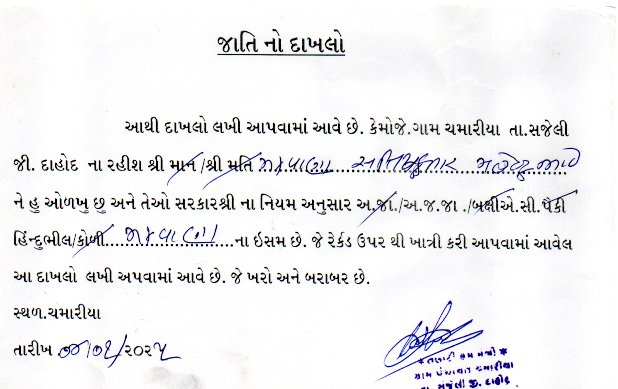 જાતિ નો દાખલો
આથી દાખલો લખી આપવામાં આવે છે. કેમોજે.ગામ ચમારીયા તા.સજેલી
જી. દાહોદ ના રહીશ શ્રી માન /શ્રી મતિ
ને હુ ઓળખુ છુ અને તેઓ સરકારશ્રી ના નિયમ અનુસાર અ.જા./અ.જ.જા ./બક્ષીએ.સી.પૈકી
હિંન્દુભીલ/કોળી.................... ના ઇસમ છે. જે રેર્કડ ઉપર થી ખાત્રી કરી આપવામાં આવેલ
આ દાખલો લખી અપવામાં આવે છે. જે ખરો અને બરાબર છે.
સ્થળ.ચમારીયા
તારીખ /૨૦૨૫
ગ્રામ પંચાયત ચમારીયા
તા. સજેલી જી. દાહોદ